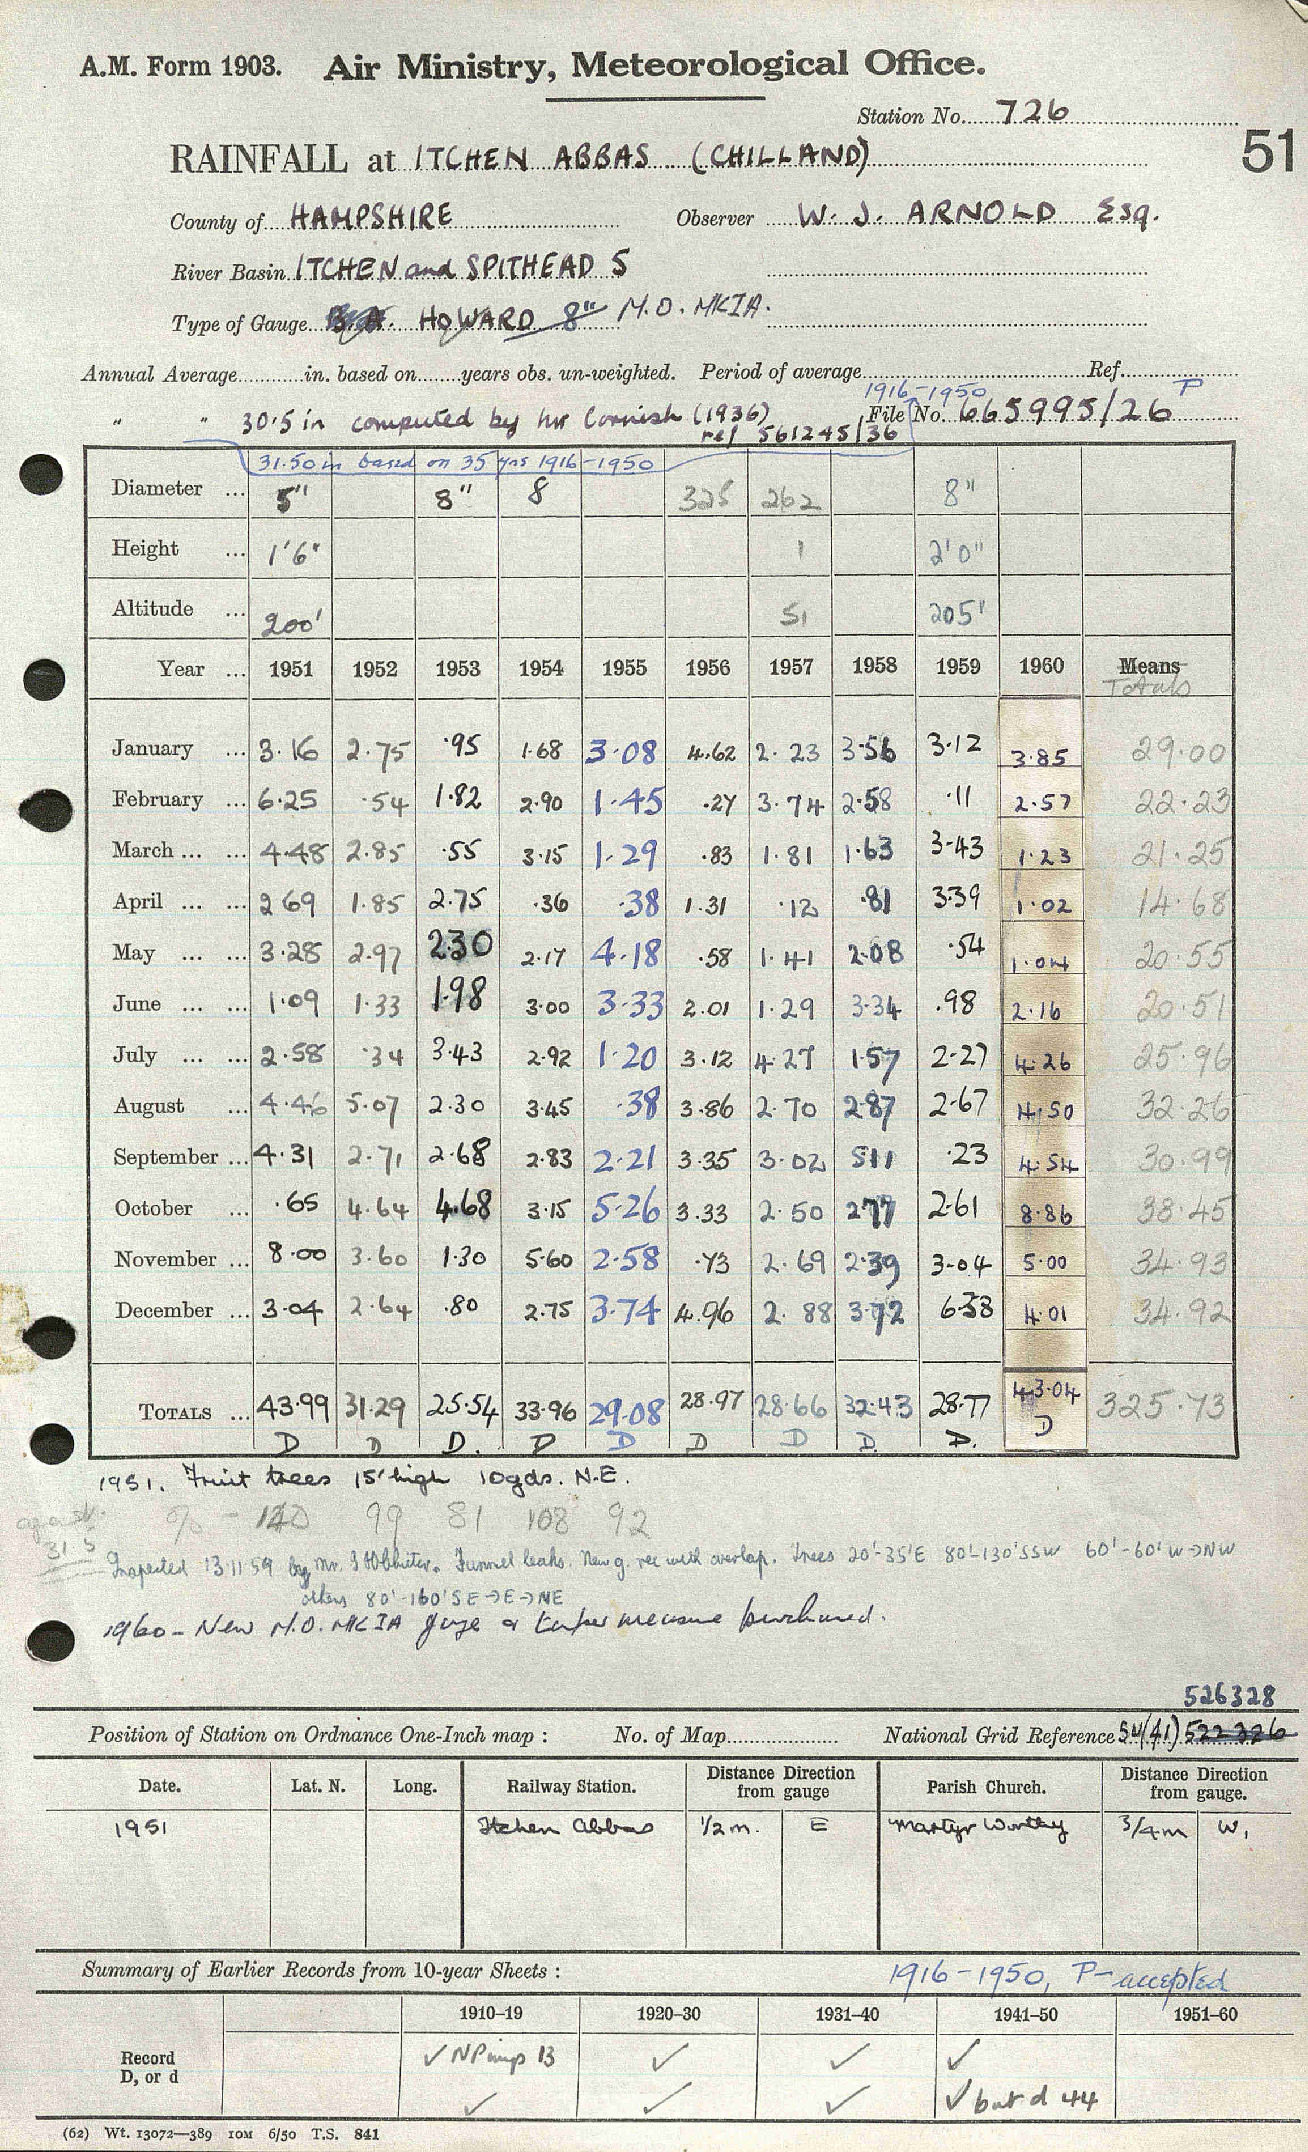 A.M. Form 1903. Air Ministry, Meteorological Office.
Station No. 726
51
RAINFALL at ITCHEN ABBAS (CHILLAND)
County of HAMPSHIRE Observer W. J. ARNOLD Esq.
River Basin ITCHEN and SPITHEAD S
Type of Gauge HOWARD 8" M.O. MKIA.
Annual Average in. based on years obs. un-weighted. Period of average Ref.
1916-1950 P
" " 30.5 in computed by Mr Cornish (1936) File No. 665995/26
ref 561245/36
31.50 in based on 35 yrs 1916-1950
Diameter ... 5" 8" 8 325 262 8"
Height ... 1'6" 1 2'0"
Altitude ... 200' 51 205'
Year ... 1951 1952 1953 1954 1955 1956 1957 1958 1959 1960 Means
Totals
January ... 3.16 2.75 .95 1.68 3.08 4.62 2.23 3.56 3.12 3.85 29.00
February ... 6.25 .54 1.82 2.90 1.45 .27 3.74 2.58 .11 2.57 22.23
March ... ... 4.48 2.85 .55 3.15 1.29 .83 1.81 1.63 3.43 1.23 21.25
April ... ... 2 69 1.85 2.75 .36 .38 1.31 .12 .81 3.39 1.02 14.68
May ... ... 3.28 2.97 2.30 2.17 4.18 .58 1.41 2.08 .54 1.04 20.55
June ... ... 1.09 1.33 1.98 3.00 3.33 2.01 1.29 3.34 .98 2.16 20.51
July ... ... 2.58 .34 3.43 2.92 1.20 3.12 4.27 1.57 2.27 4.26 25.96
August ... 4.46 5.07 2.30 3.45 .38 3.86 2.70 2.87 2.67 4.50 32.26
September ... 4.31 2.71 2.68 2.83 2.21 3.35 3.02 5.11 .23 4.54 30.99
October ... .65 4.64 4.68 3.15 5.26 3.33 2.50 2.77 2.61 8.86 38.45
November ... 8.00 3.60 1.30 5.60 2.58 .73 2.69 2.39 3.04 5.00 34.93
December ... 3.04 2.64 .80 2.75 3.74 4.96 2.88 3.72 6.38 4.01 34.92
TOTALS ... 43.99 31.29 25.54 33.96 29.08 28.97 28.66 32.43 28.77 43.04 325.73
D D D. D D D D D. D. D
1951. Fruit trees 15' high 10yds. N.E.
% - 140 99 81 108 92
31 5
Inspected 13.11.59 by Mr. Funnel leaks. New g. rec with overlap. Trees 20'-35'E 80'-130'SSW 60'-60'W→NW
others 80'-160'SE→E→NE
1960 - New M.O. MKIA gauge & taper measure purchased.
526328
Position of Station on Ordnance One-Inch map : No. of Map National Grid Reference SU(41) 522326
Date. Lat. N. Long. Railway Station. Distance Direction from gauge Parish Church. Distance Direction from gauge.
1951 Itchen Abbas 1/2 m. E Martyr Worthy 3/4 m W.
Summary of Earlier Records from 10-year Sheets : 1916-1950, P-accepted
1910-19 1920-30 1931-40 1941-50 1951-60
Record D, or d
✓ 13 ✓ ✓ ✓
✓ ✓ ✓ ✓ but d 44
(62) Wt. 13072—389 10M 6/50 T.S. 841